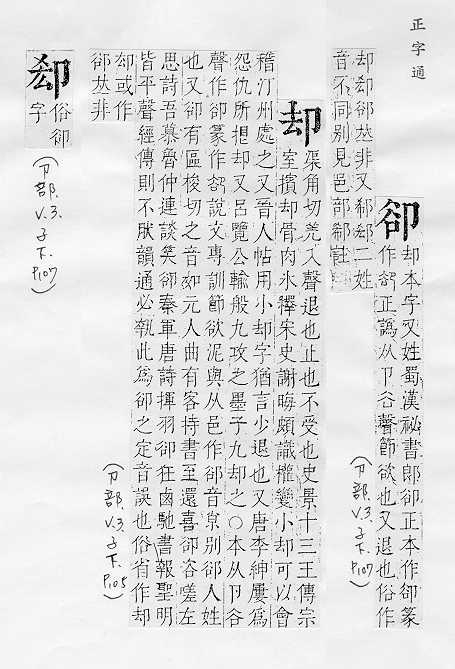 正字通
卻
却本字又姓蜀漢祕書郎卻正本作卻篆
作正譌从卩谷聲節欲也又退也俗作
却㕁郤𠀤非又郗郄二姓
音不同别見邑部郗註
(卩部. V.3. 子下. P107)
却
渠角切羌入聲退也止也不受也史景十三王傳宗
室擯却骨肉氷釋宋史謝晦頗識機變小却可以會
稽汀州處之又晉人帖用小却字猶言少退也又唐李紳屢爲
怨仇所却又呂覽公輸般九攻之墨子九却之○本从卩谷
聲作卻篆作說文專訓節欲泥與从邑作郤音别郤人姓
也又卻有區梭切之音如元人曲有客持書至還喜卻咨嗟左
思詩吾慕魯仲連談笑卻秦軍唐詩揮羽卻狂鹵馳書報聖明
皆平聲經傳則不肰韻通必執此爲卻之定音誤也俗省作却
却或作
郤𠀤非
(卩部. V.3. 子下. P105)
㕁
俗卻
字
(卩部. V.3. 子下. P107)